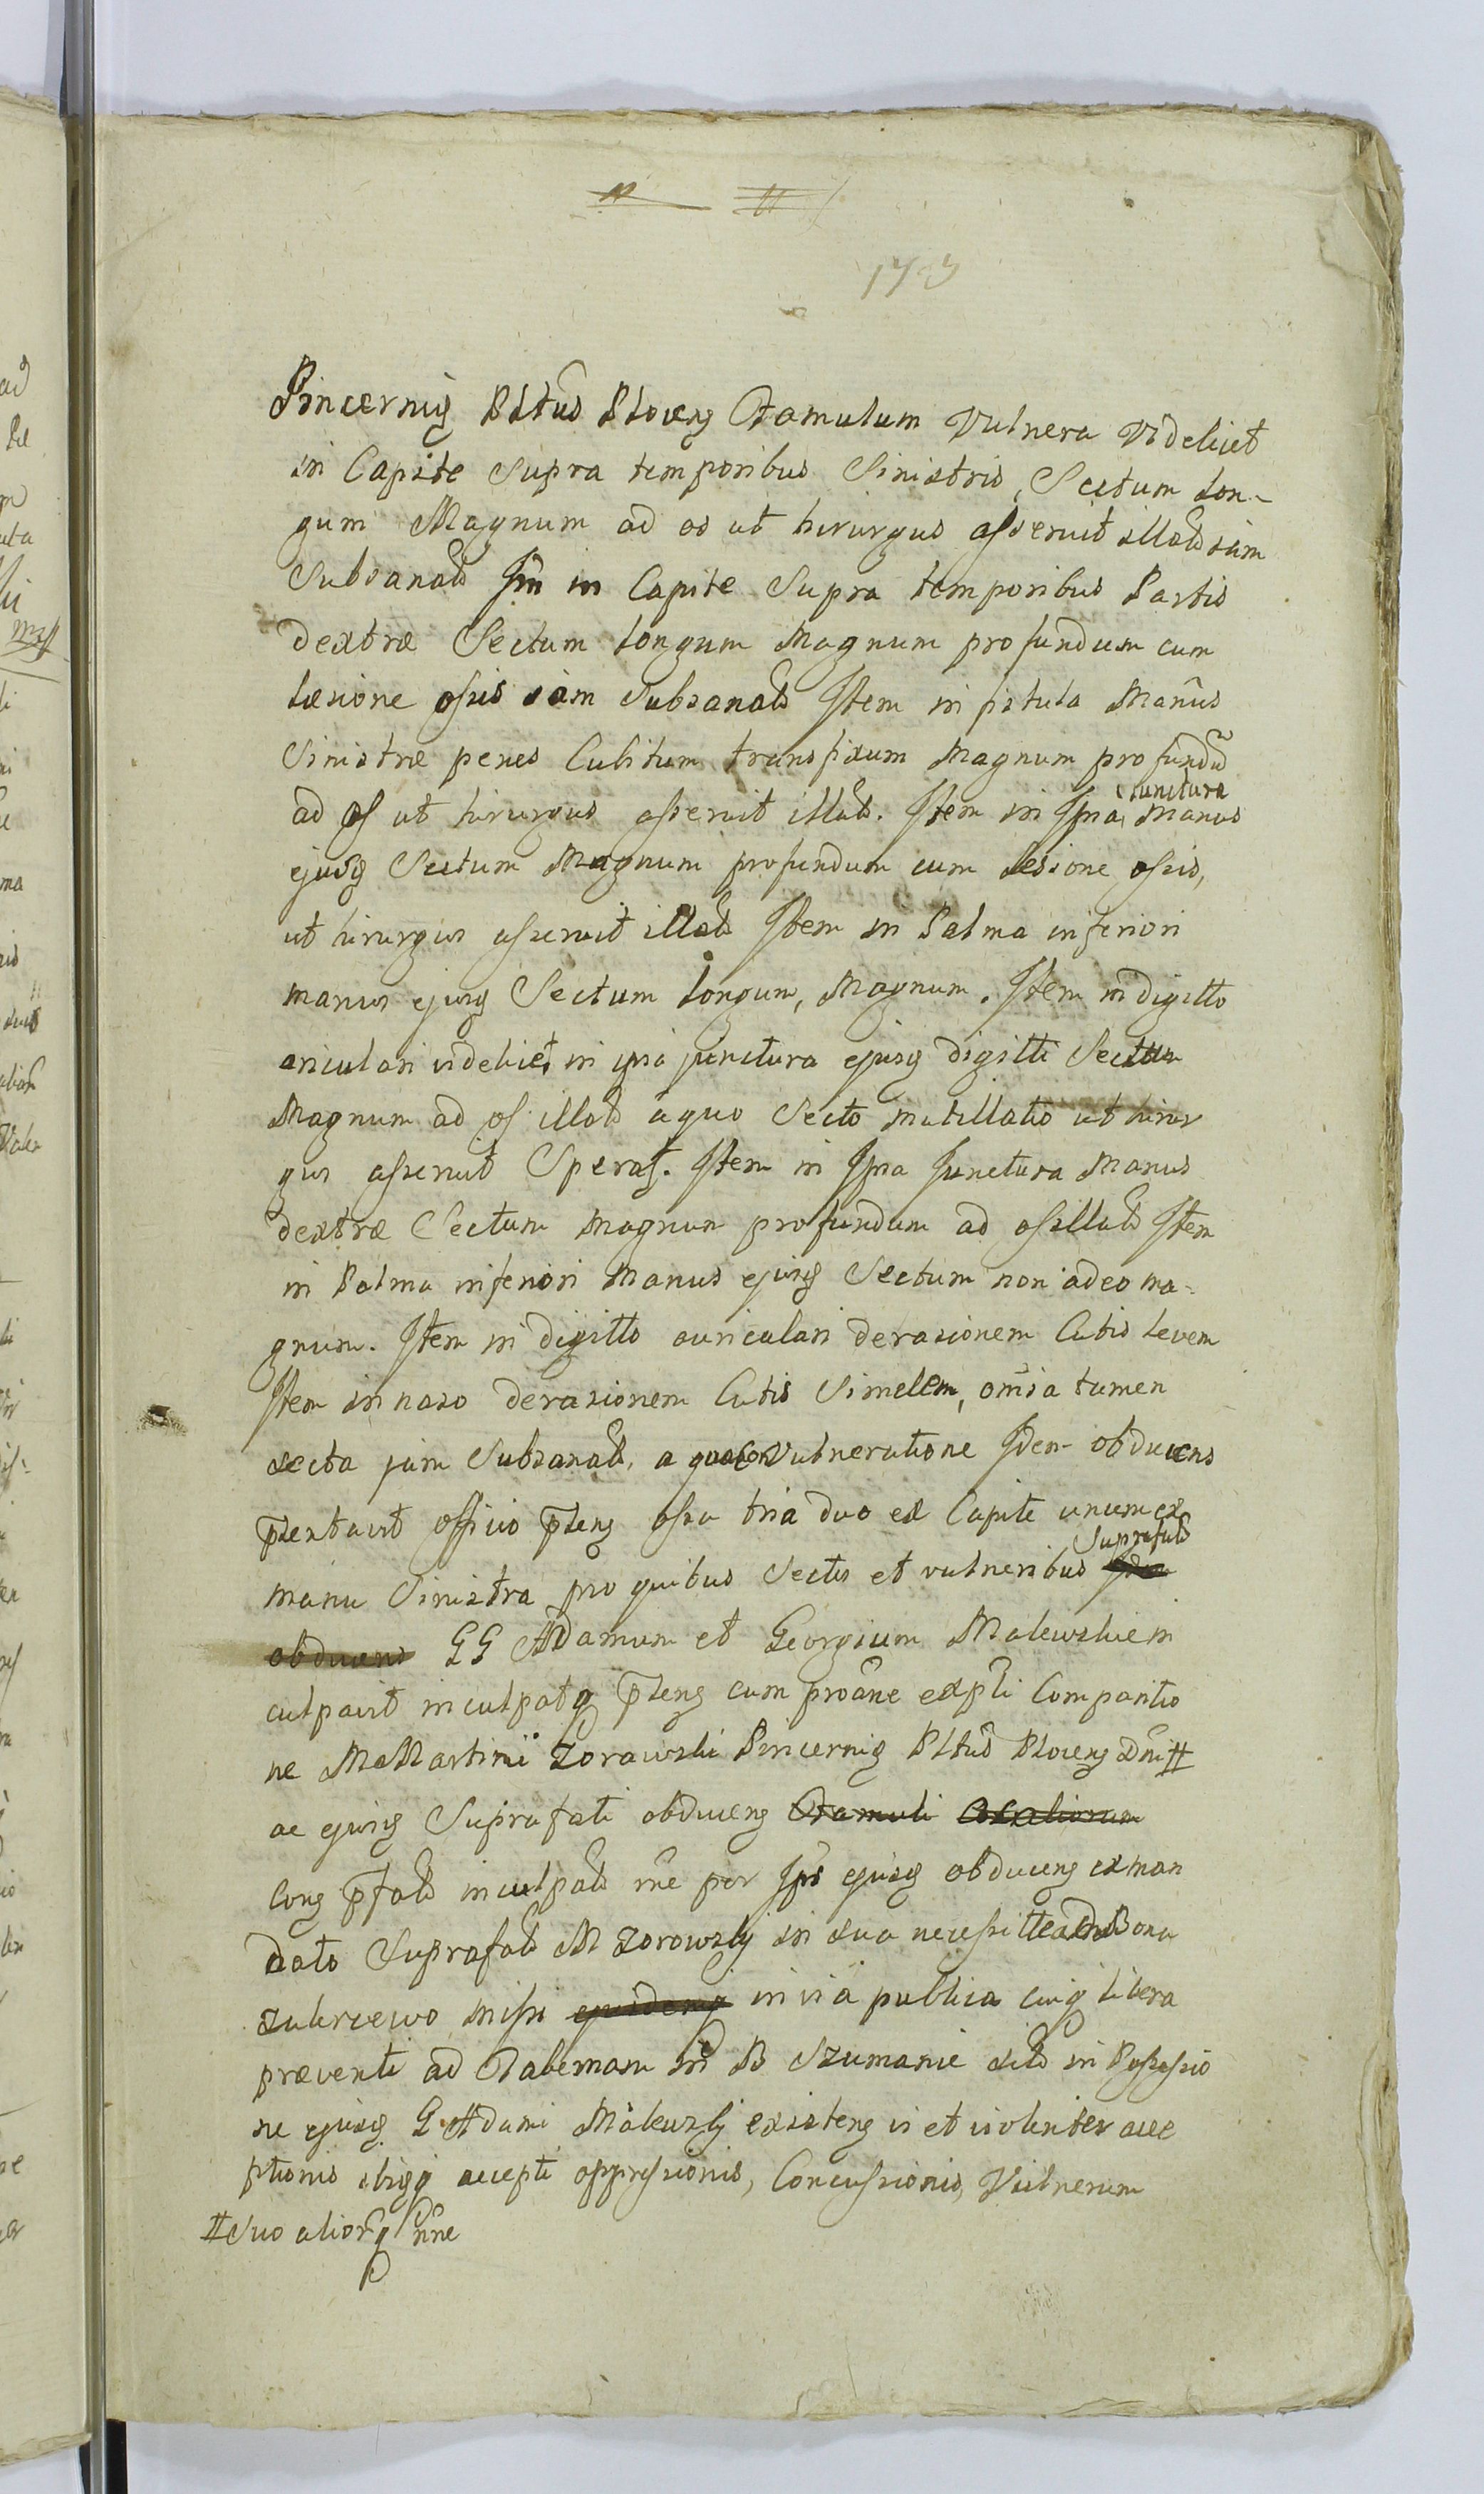 Pincernis Pltus Plocens Famulum Vulnera Videlicet
in Capite Supra temporibus Sinistris, Sectum lon-
gum Magnum ad os ut hirurgus asseruit illat iam
Subsanat Itm in Capite Supra temporibus Partis
dextræ Sectum longum Magnum profundum cum
læsione ossis iam Subsanat Item in fistula Manus
Sinistræ penes Cubitum transfixum Magnum profundu
ad os ut hirurgus asseruit illat. Item in Ipsa Iunctura Manus
ejusq Sectum Magnum profundum cum lesione ossis,
ut hirurgus asseruit illat Item in Palma inferiori
manus ejusq Sectum longum, Magnum. Item in digitto
ariculari videlicet in ipsa junctura ejusq digitti Sectum
Magnum ad os illat a quo Secto mutillatio ut hirur
gus asseruit Sperat. Item in Ipsa Junctura Manus
dextræ Sectum magnum profundum ad os illat Item
in Palma inferiori Manus ejusq Sectum non adeo ma-
gnum. Item in digitto auriculari derasionem Cutis levem
Item in naso derasionem Cutis Similem, omia tamen
secta jam Subsanat, a qua Vulneratione Idem obducens
pntavit officio pnteng ossa tria duo ex Capite unum ex
manu Sinistra pro quibus Sectis et vulneribus Suprafat
obducens GG Adamum et Georgium Malewskie in
culpavit inculpatq pnteng cum proane expti Comparitio
ne M Martini Zorawski Pincernig Pltus Ploceng Dni #
ac ejusq Suprafati obduceng Famuli
Cong pfat inculpat rne per Ips ejusq obduceng ex man
dato Suprafat M Zorawskj in sua necessitte ad Bona
Zukrcewo missi ejusdemq in via publica cuiq libera
præventi ad Tabernam in B Szumanie sit in Possessio
ne ejusq G Adami Malewskj existeng vi et violenter acce
ptionis ibiqq accepti oppressionis, Concussionis, Vulnerum
# Suo aliorq nne